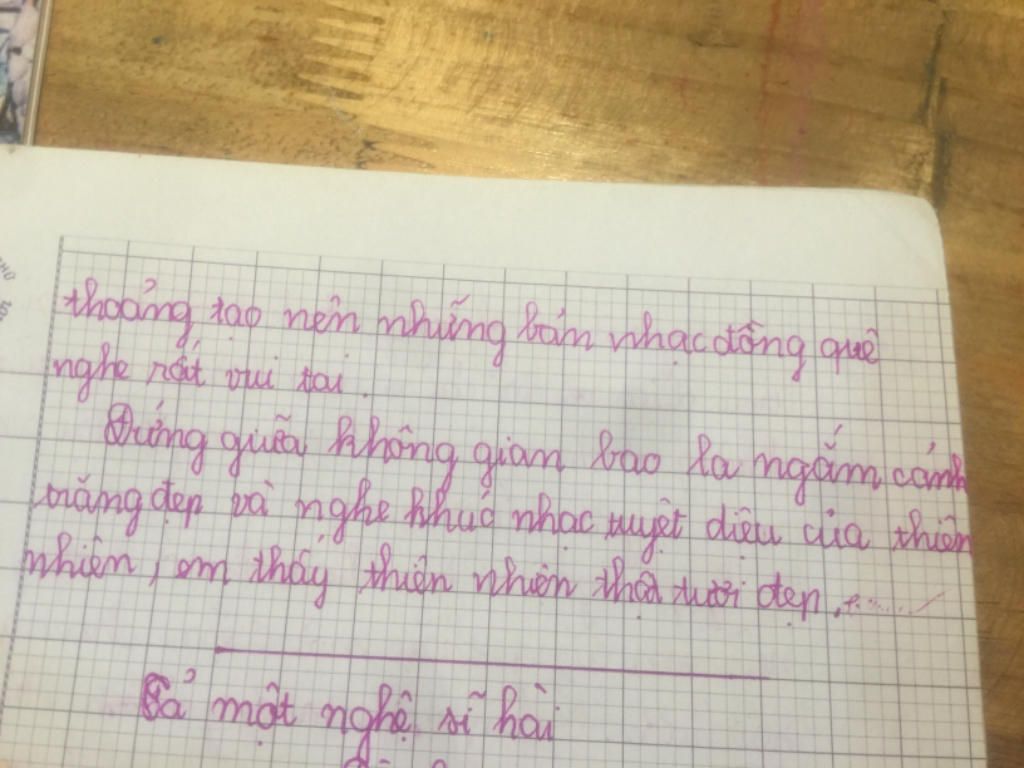 thoảng tạo nên những bản nhạc đồng quê
nghe rất vui tai.
Đứng giữa không gian bao la ngắm cảnh
trăng đẹp và nghe khúc nhạc tuyệt diệu của thiên
nhiên, em thấy thiên nhiên thật tươi đẹp.
Tả một nghệ sĩ hài